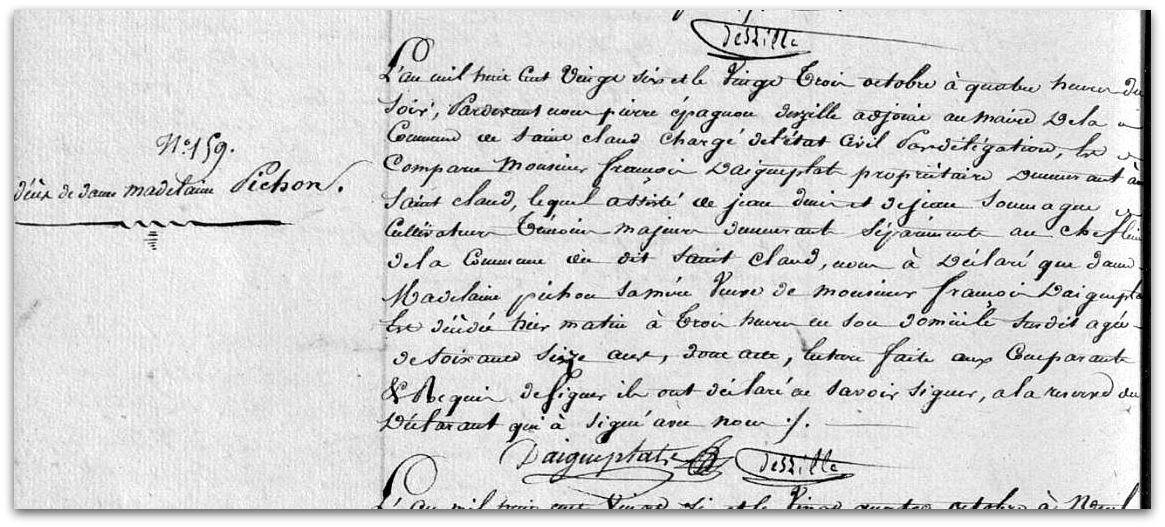 deszille
N.o 159.
décès de dame madelaine Pichon.
L'an mil huit cent vingt six et le vingt trois octobre à quatre heures du
soir, Pardevant nous pierre épagnon deszille adjoint au maire De la
Commune de saint claud chargé de l'état Civil Par délégation, Est
Comparu Monsieur françois Daigueplat propriétaire Demeurant à
Saint claud, lequel assisté de jean denis et de jean Soumagne
Cultivateurs Témoins majeurs demeurant Séparément au chef lieu
de la Commune du dit saint claud, nous à Déclaré que dame
Madelaine pichon sa mère Veuve de monsieur françois Daigueplat
Est décédée hier matin à trois heures en son domicile susdit agée
de soixante seize ans, dont acte, lecture faite aux Comparants
& Requis de signer ils ont déclaré ne savoir signer, a la reserve du
Déclarant qui à signé avec nous ./.
Daigueplat deszille
L'an mil huit cent vingt six et le vingt quatre octobre à Neuf